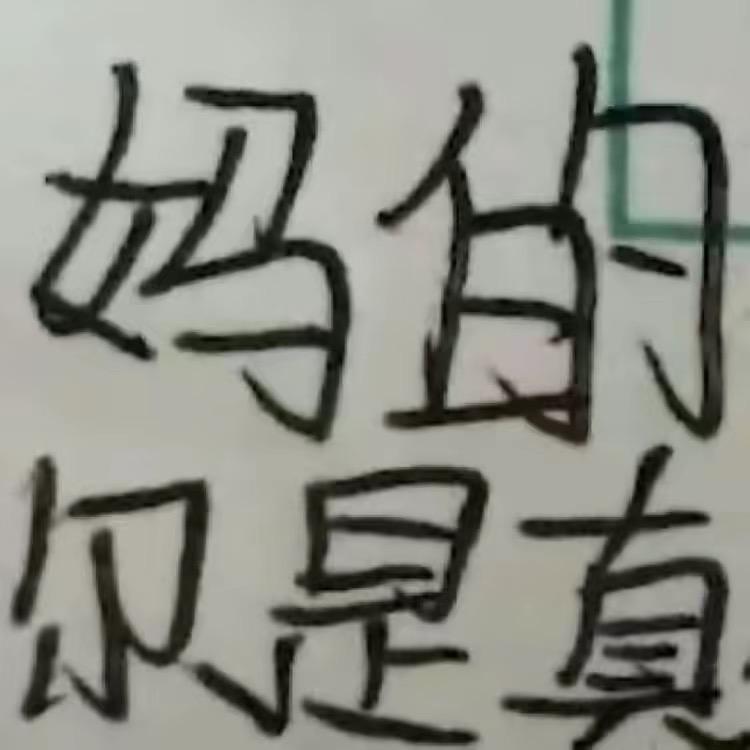 妈的
尔是真